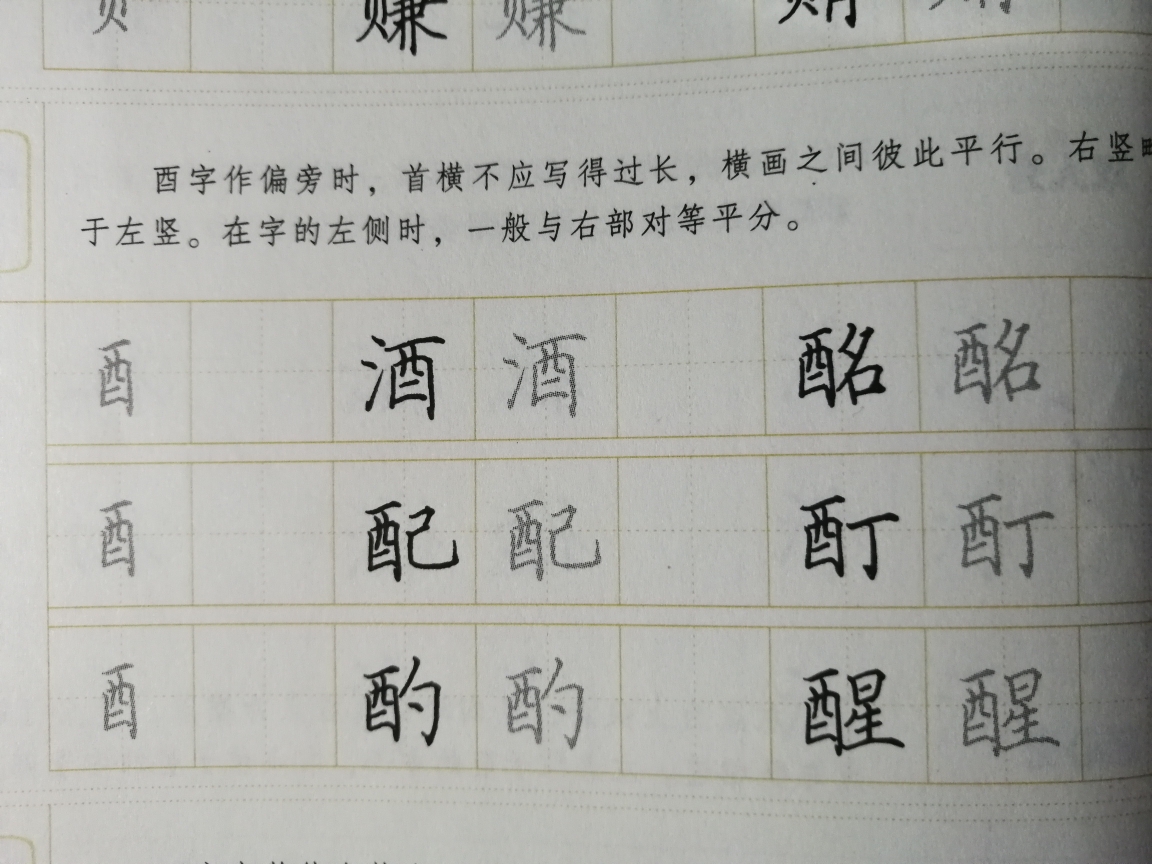 赚 赚
酉字作偏旁时，首横不应写得过长，横画之间彼此平行。右竖略
于左竖。在字的左侧时，一般与右部对等平分。
酉 酒 酒 酩 酩
酉 配 配 酊 酊
酉 酌 酌 醒 醒